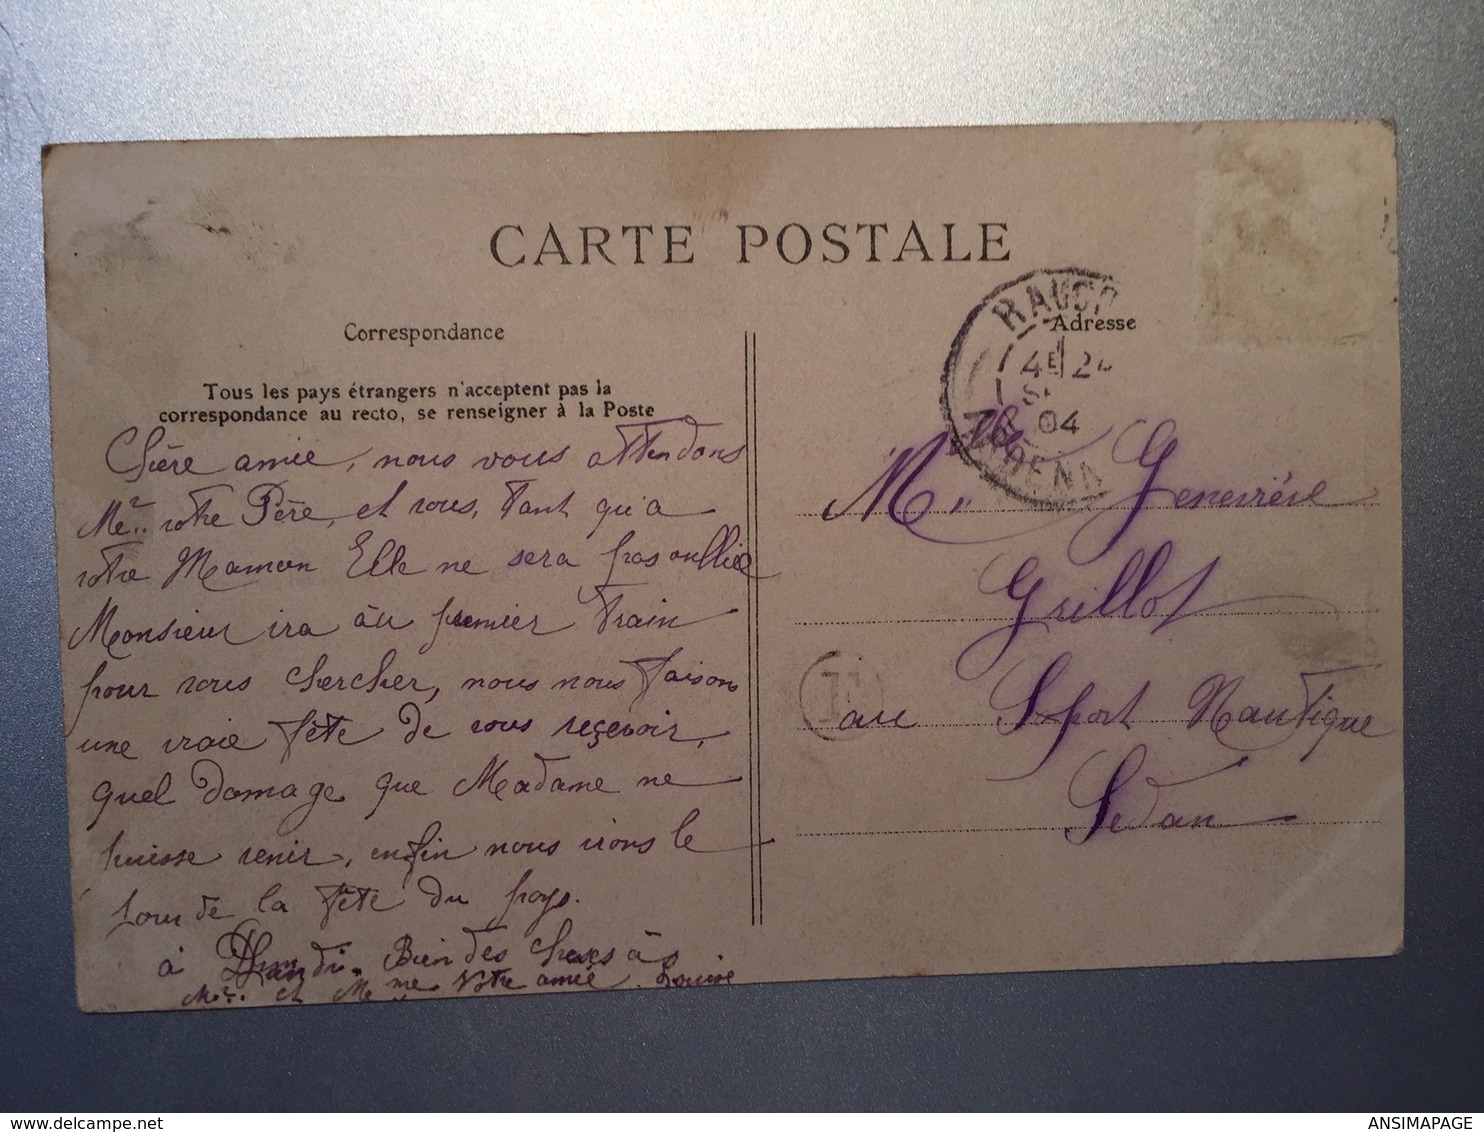 CARTE POSTALE
Correspondance
Tous les pays étrangers n'acceptent pas la
correspondance au recto, se renseigner à la Poste
Chère amie, nous vous attendons
Mr. votre Père, et vous, tant qu'a
votre Maman Elle ne sera pas oubliée
Monsieur ira au premier train
pour vous chercher, nous nous faisons
une vraie fête de vous reçevoir,
quel domage que Madame ne
puisse venir, enfin nous irons le
de la fête du pays.
à Bien des choses à
Mr. et Mme Votre amie Louise
Adresse
RAUCO
4E 24
04
ARDENN
Mlle Geneviève
Grillot
au Sport Nautique
Sedan
ANSIMAPAGE